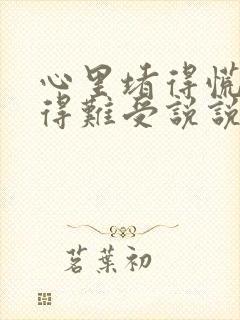 心里堵得慌
得难受说说
茗葉初